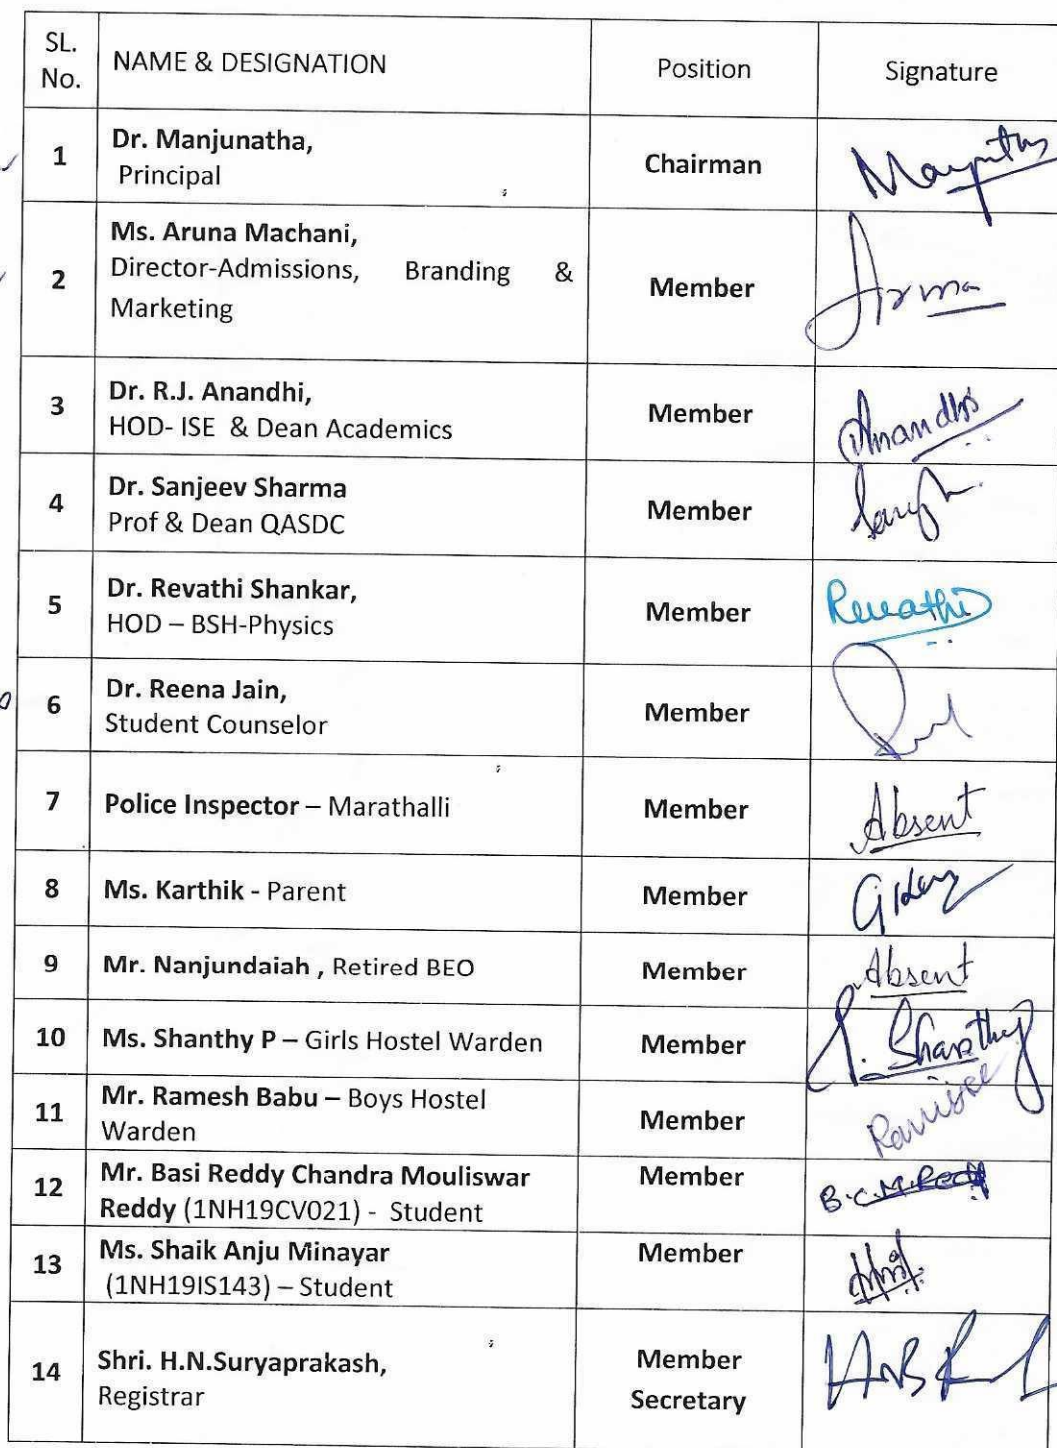 SL. No. NAME & DESIGNATION Position Signature
1 Dr. Manjunatha, Principal Chairman
2 Ms. Aruna Machani, Director-Admissions, Branding & Marketing Member
3 Dr. R.J. Anandhi, HOD- ISE & Dean Academics Member Anandhi
4 Dr. Sanjeev Sharma Prof & Dean QASDC Member
5 Dr. Revathi Shankar, HOD – BSH-Physics Member Revathi
6 Dr. Reena Jain, Student Counselor Member
7 Police Inspector – Marathalli Member Absent
8 Ms. Karthik - Parent Member
9 Mr. Nanjundaiah , Retired BEO Member Absent
10 Ms. Shanthy P – Girls Hostel Warden Member Shanthy
11 Mr. Ramesh Babu – Boys Hostel Warden Member
12 Mr. Basi Reddy Chandra Mouliswar Reddy (1NH19CV021) - Student Member B.C.M.Reddy
13 Ms. Shaik Anju Minayar (1NH19IS143) – Student Member
14 Shri. H.N.Suryaprakash, Registrar Member Secretary